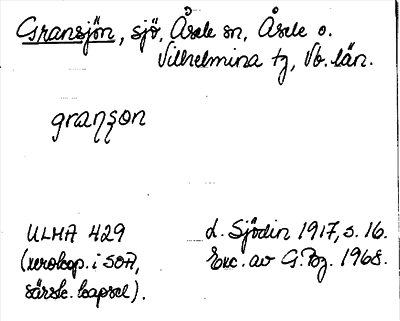 Gransjön, sjö, Åsele sn, Åsele o.
Vilhelmina tg, Vb. län.
granʒʒon
ULMA 429
(xerokop. i SOA,
särsk. kapsel).
d. Sjödin 1917, s. 16.
Exc. av G. Bg. 1968.